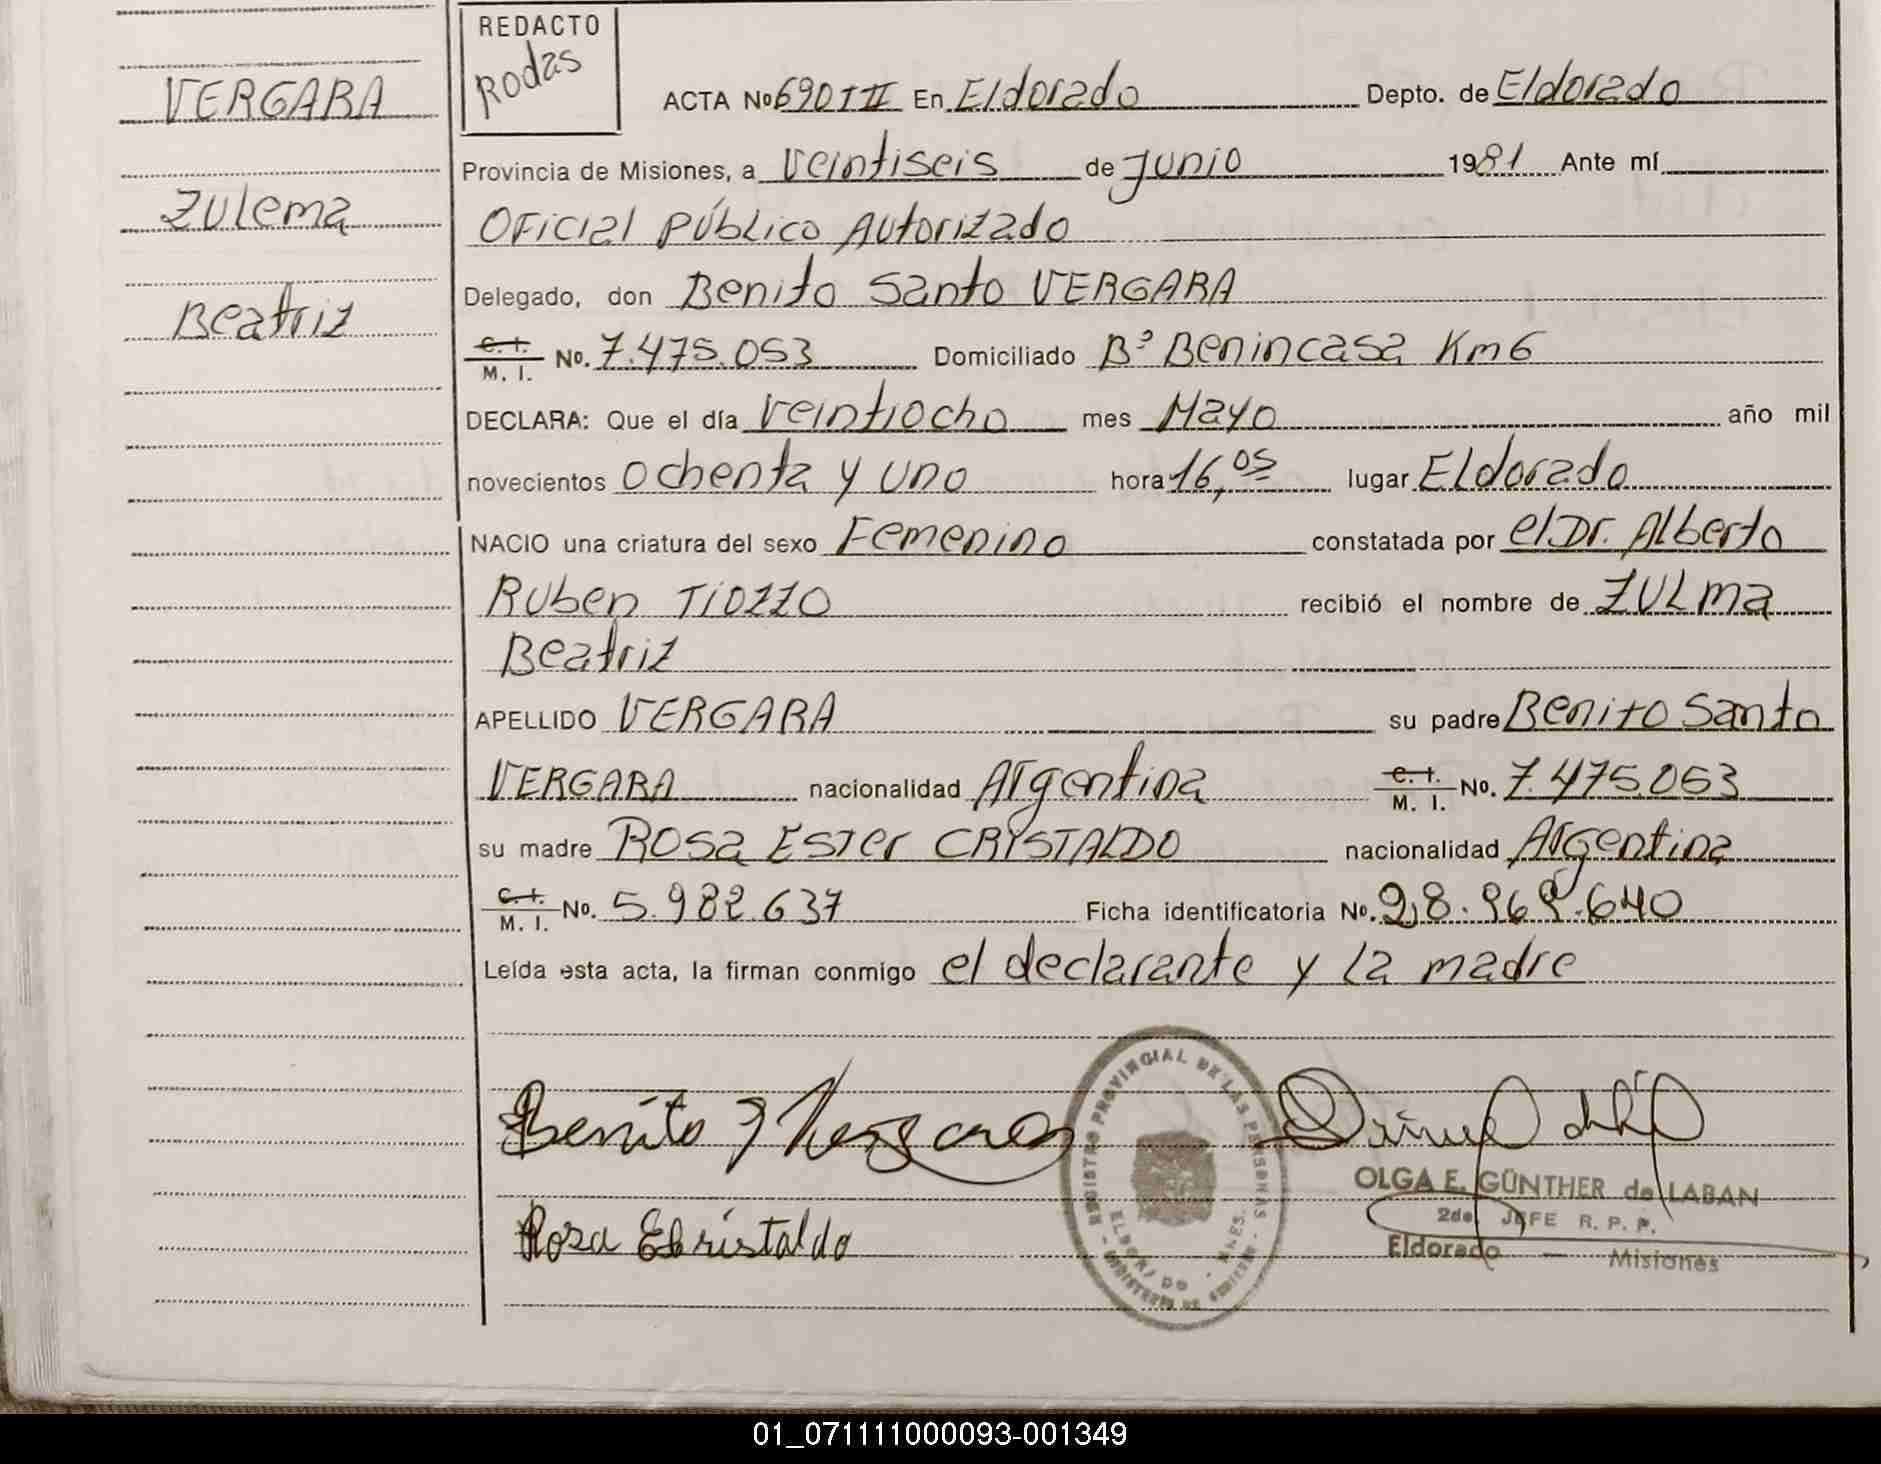 VERGARA
Zulema
Beatriz
REDACTO
Rodas
ACTA No 690 T II En Eldorado Depto. de Eldorado
Provincia de Misiones, a veintiseis de Junio 1981 Ante mí
Oficial Público Autorizado
Delegado, don Benito Santo VERGARA
C. I. M. I. No. 7.475.053 Domiciliado Bº Benincasa Km 6
DECLARA: Que el día veintiocho mes Mayo año mil
novecientos ochenta y uno hora 16,05 lugar Eldorado
NACIO una criatura del sexo Femenino constatada por el Dr. Alberto
Ruben TIOZZO recibió el nombre de ZULma
Beatriz
APELLIDO VERGARA su padre Benito Santo
VERGARA nacionalidad Argentina C. I. M. I. No. 7.475.053
su madre Rosa Ester CRISTALDO nacionalidad Argentina
C. I. M. I. No. 5.982.637 Ficha identificatoria No. 28.969.640
Leída esta acta, la firman conmigo el declarante y la madre
Benito S Vergara
Rosa E Cristaldo
REGISTRO PROVINCIAL DE LAS PERSONAS
ELDORADO - MNES.
OLGA E. GÜNTHER de LABAN
2do. JEFE R. P. P.
Eldorado — Misiones
01_071111000093-001349